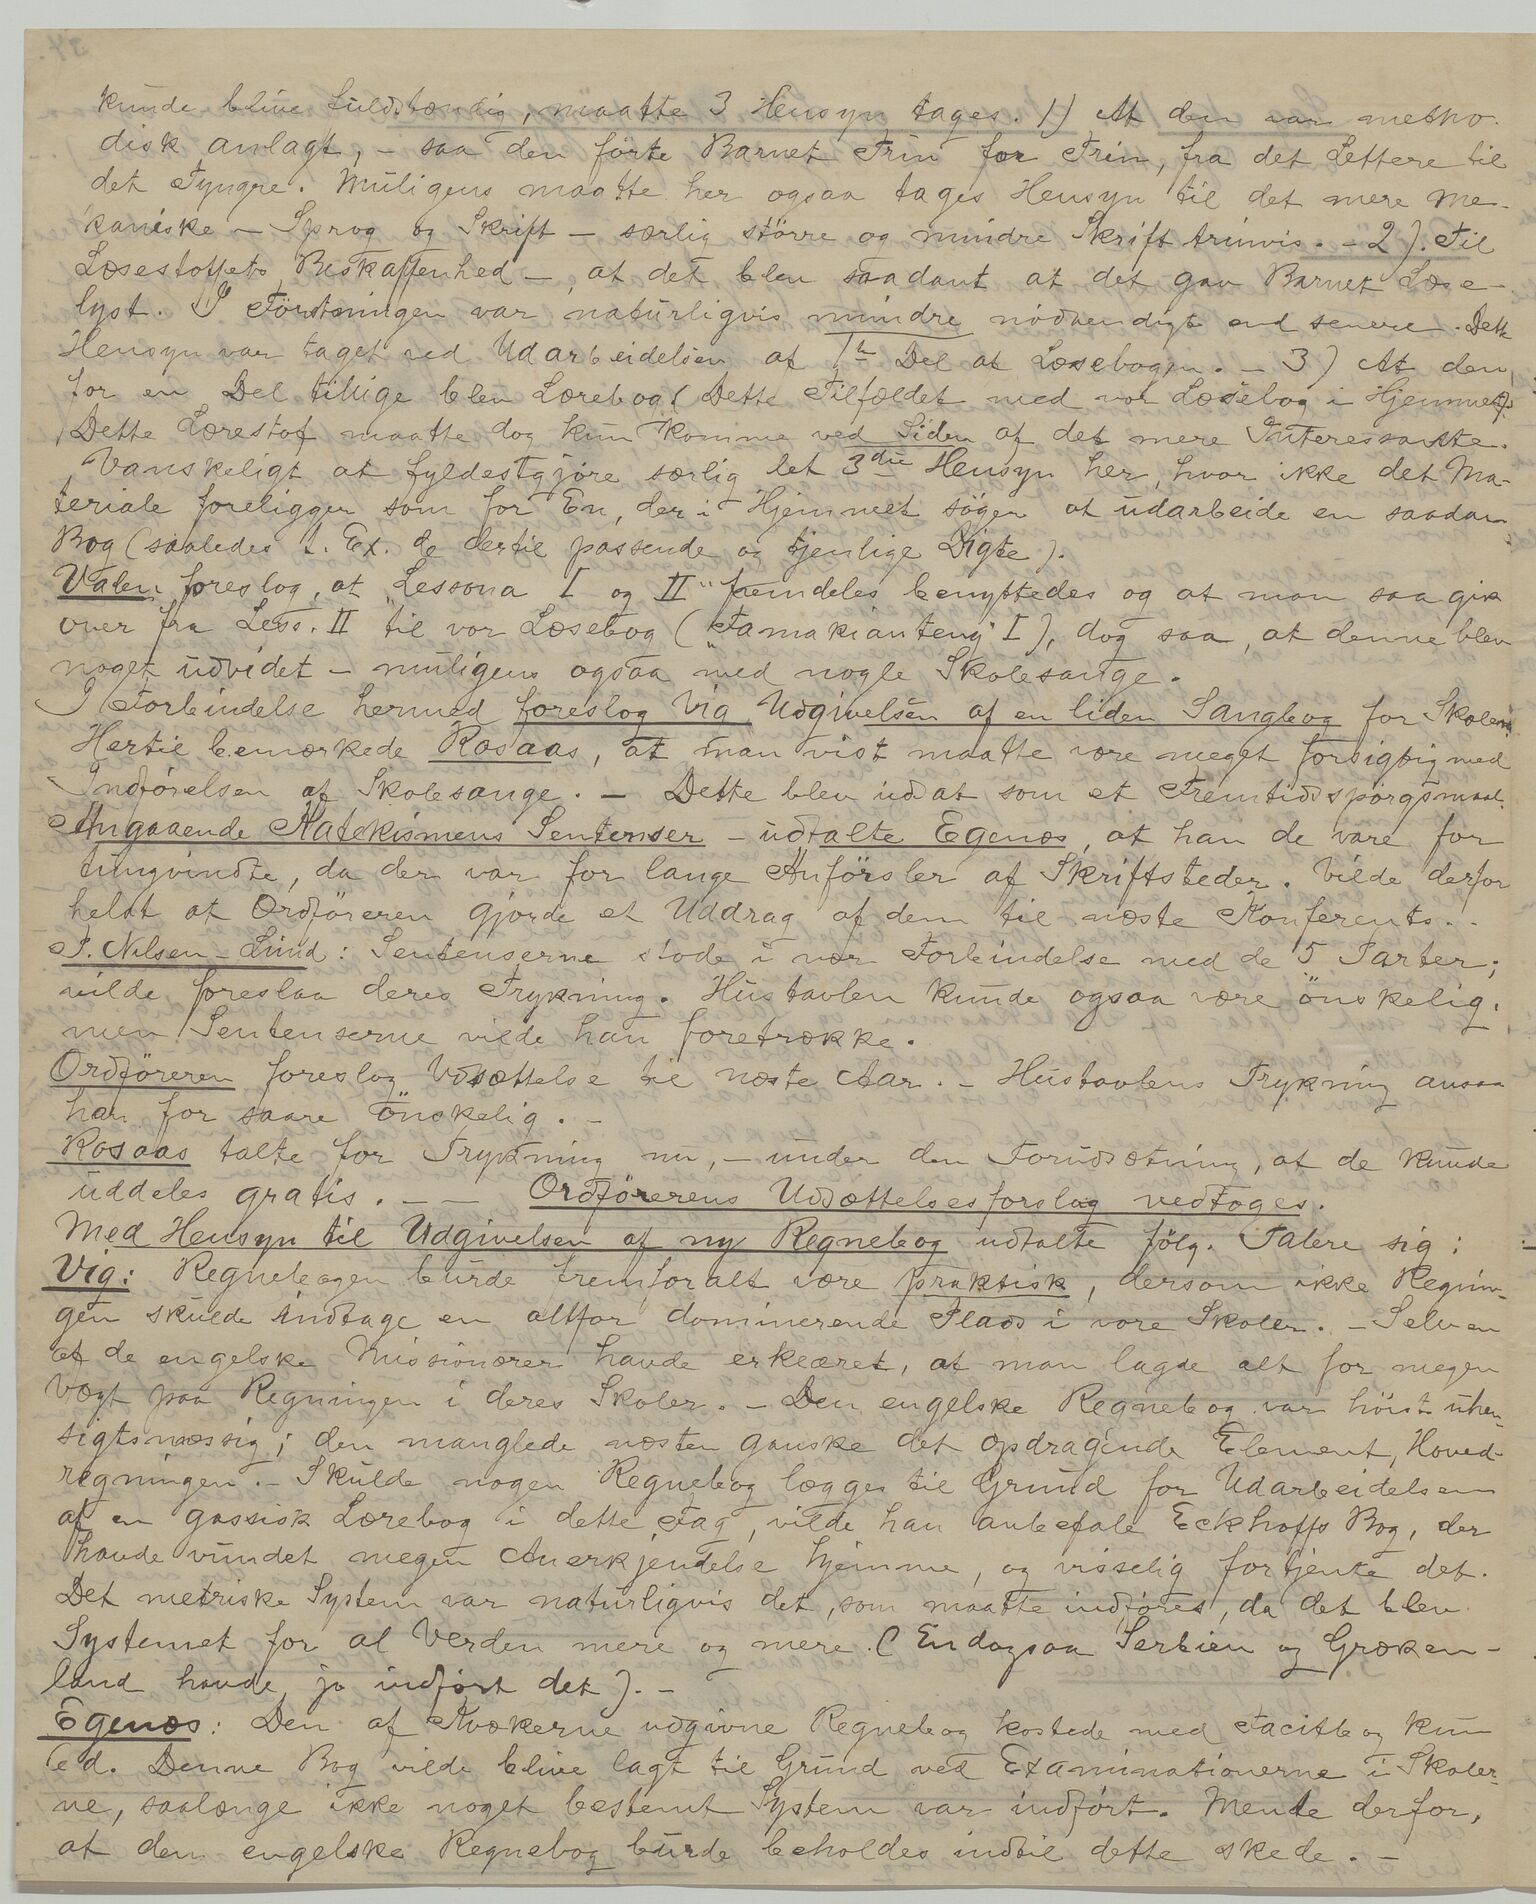 kunde blive fuldstændig, maatte 3 Hensyn tages. 1) At den var metho-
disk anlagt, – saa den förte Barnet Trin for Trin, fra det Lettere til
det Tyngre. Muligens maatte her ogsaa tages Hensyn til det mere Me-
kaniske – Sprog og Skrift – særlig större og mindre Skrift trinvis. – 2). Til
Læsestoffets Beskaffenhed –, at det blev saadant at det gav Barnet Læse-
lyst. I Förstningen var naturligvis mindre nödvendigt end senere. Dette
Hensyn var taget ved Udarbeidelsen af 1ste Del af Læsebogen. – 3) At den
for en Del tillige blev Lærebog (Dette Tilfældet med vor Læsebog i Hjemmet).
Dette Lærestof maatte dog kun komme ved Siden af det mere Interessante.
Vanskeligt at fyldestgjöre særlig det 3die Hensyn her, hvor ikke det Ma-
teriale foreligger som for En, der i Hjemmet söger at udarbeide en saadan
Bog (saaledes t. Ex. de dertil passende og tjenlige Digte).
Valen foreslog, at "Lessona I og II" fremdeles benyttedes og at man saa gik
over fra Less. II til vor Læsebog ("Famakianteny" I), dog saa, at denne blev
noget udvidet – muligens ogsaa med nogle Skolesange.
I Forbindelse hermed foreslog Vig Udgivelsen af en liden Sangbog for Skolen.
Hertil bemærkede Rosaas, at man vist maatte være meget forsigtig med
Indförelsen af Skolesange. – Dette blev udsat som et Fremtidsspörgsmaal.
Angaaende Katekismens Sentenser – udtalte Egenæs, at han de vare for
tungvindte, da der var for lange Anförsler af Skriftsteder. Vilde derfor
helst at Ordföreren gjorde et Uddrag af dem til næste Konferents. –
T. Nilsen-Lund: Sentenserne stode i nær Forbindelse med de 5 Parter;
vilde foreslaa deres Trykning. Hustavlen kunde ogsaa være önskelig,
men Sentenserne vilde han foretrække.
Ordföreren foreslog Udsættelse til næste Aar. – Hustavlens Trykning ansaa
han for saare önskelig. –
Rosaas talte for Trykning nu, – under den Forudsætning, at de kunde
uddeles gratis. – – Ordförerens Udsættelsesforslag vedtoges.
Med Hensyn til Udgivelsen af ny Regnebog udtalte fölg. Talere sig:
Vig: Regnebogen burde fremforalt være praktisk, dersom ikke Regnin-
gen skulde indtage en altfor dominerende Plads i vore Skoler. – Selv en
af de engelske Missionærer havde erklæret, at man lagde alt for megen
Vægt paa Regningen i deres Skoler. – Den engelske Regnebog var höist uhen-
sigtsmæssig; den manglede næsten ganske det opdragende Element, Hoved-
regningen. – Skulde nogen Regnebog lægges til Grund for Udarbeidelsen
af en gassisk Lærebog i dette Fag, vilde han anbefale Eckhoffs Bog, der
havde vundet megen Anerkjendelse hjemme, og visselig fortjente det.
Det metriske System var naturligvis det, som maatte indföres, da det blev
Systemet for al Verden mere og mere. (Endogsaa Serbien og Græken-
land havde jo indfört det). –
Egenæs: Den af Kvækerne udgivne Regnebog kostede med Facitbog kun
6d. Denne Bog vilde blive lagt til Grund ved Examinationerne i Skoler-
ne, saalænge ikke noget bestemt System var indfört. Mente derfor,
at den engelske Regnebog burde beholdes indtil dette skede. –